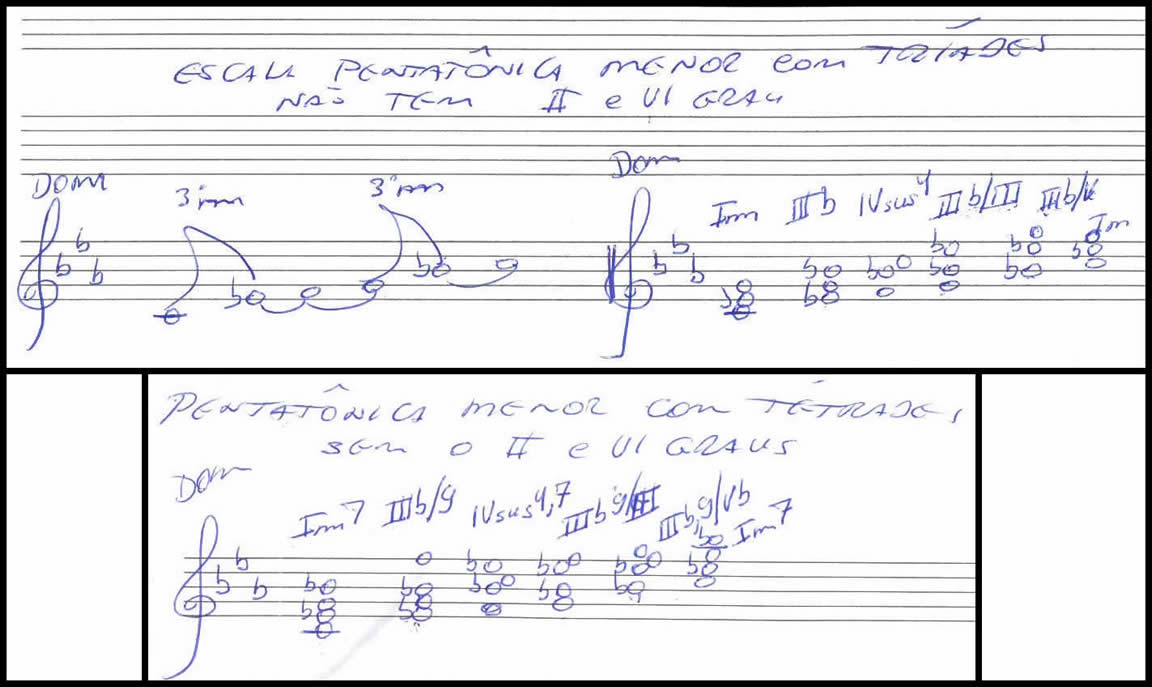 ESCALA PENTATÔNICA MENOR COM TRÍADES
NÃO TEM II e VI GRAU
Dom
3ªm
3ªm
Dom
Im IIIb IVsus4 IIIb/III IIIb/V Im
PENTATÔNICA MENOR COM TÉTRADES,
SEM O II e VI GRAUS
Dom
Im7 IIIb/9 IVsus4,7 IIIb9/III IIIb,9/Vb Im7